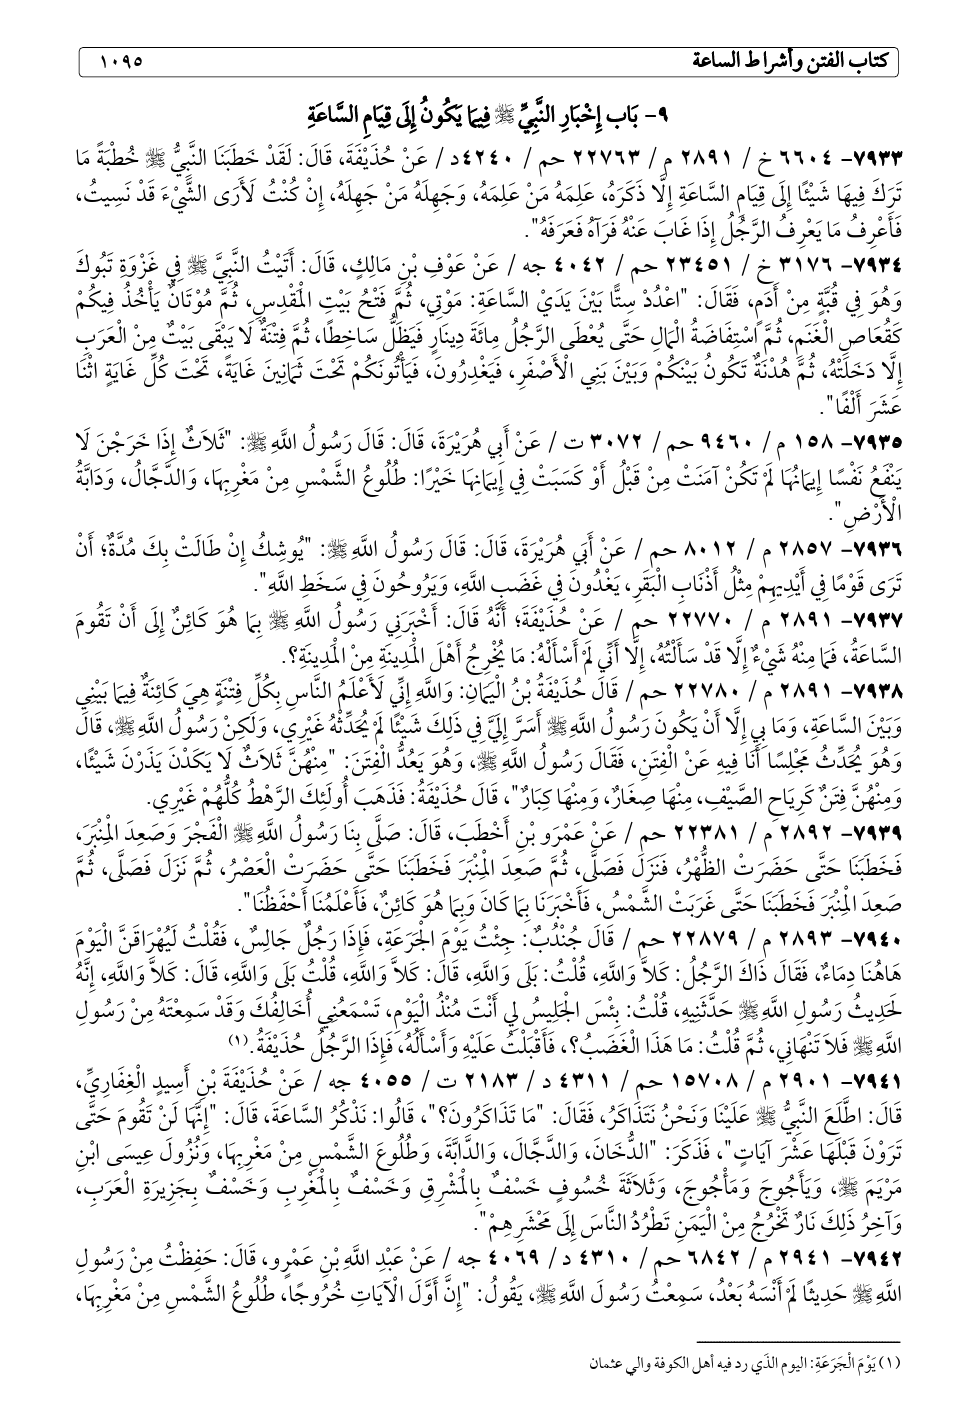 كتاب الفتن وأشراط الساعة ١٠٩٥
٩- بَاب إِخْبَارِ النَّبِيِّ ﷺ فِيمَا يَكُونُ إِلَى قِيَامِ السَّاعَةِ
٧٩٣٣- ٦٦٠٤ خ / ٢٨٩١ م/ ٢٢٧٦٣ حم / ٤٢٤٠د / عَنْ حُذَيْفَةَ، قَالَ: لَقَدْ خَطَبَنَا النَّبِيُّ ﷺ خُطْبَةً مَا
تَرَكَ فِيهَا شَيْئًا إِلَى قِيَامِ السَّاعَةِ إِلَّا ذَكَرَهُ، عَلِمَهُ مَنْ عَلِمَهُ، وَجَهِلَهُ مَنْ جَهِلَهُ، إِنْ كُنْتُ لَأَرَى الشَّيْءَ قَدْ نَسِيتُ،
فَأَعْرِفُ مَا يَعْرِفُ الرَّجُلُ إِذَا غَابَ عَنْهُ فَرَآهُ فَعَرَفَهُ".
٧٩٣٤- ٣١٧٦ خ / ٢٣٤٥١ حم / ٤٠٤٢ جه / عَنْ عَوْفِ بْنِ مَالِكٍ، قَالَ: أَتَيْتُ النَّبِيَّ ﷺ فِي غَزْوَةِ تَبُوكَ
وَهُوَ فِي قُبَّةٍ مِنْ أَدَمٍ، فَقَالَ: "اعْدُدْ سِتًّا بَيْنَ يَدَيْ السَّاعَةِ: مَوْتِي، ثُمَّ فَتْحُ بَيْتِ الْمَقْدِسِ، ثُمَّ مُوْتَانٌ يَأْخُذُ فِيكُمْ
كَقُعَاصِ الْغَنَمِ، ثُمَّ اسْتِفَاضَةُ الْمَالِ حَتَّى يُعْطَى الرَّجُلُ مِائَةَ دِينَارٍ فَيَظَلُّ سَاخِطًا، ثُمَّ فِتْنَةٌ لَا يَبْقَى بَيْتٌ مِنْ الْعَرَبِ
إِلَّا دَخَلَتْهُ، ثُمَّ هُدْنَةٌ تَكُونُ بَيْنَكُمْ وَبَيْنَ بَنِي الْأَصْفَرِ، فَيَغْدِرُونَ، فَيَأْتُونَكُمْ تَحْتَ ثَمَانِينَ غَايَةً، تَحْتَ كُلِّ غَايَةٍ اثْنَا
عَشَرَ أَلْفًا".
٧٩٣٥- ١٥٨ م/ ٩٤٦٠ حم/ ٣٠٧٢ ت / عَنْ أَبِي هُرَيْرَةَ، قَالَ: قَالَ رَسُولُ اللَّهِ ﷺ: "ثَلَاثٌ إِذَا خَرَجْنَ لَا
يَنْفَعُ نَفْسًا إِيمَانُهَا لَمْ تَكُنْ آمَنَتْ مِنْ قَبْلُ أَوْ كَسَبَتْ فِي إِيمَانِهَا خَيْرًا: طُلُوعُ الشَّمْسِ مِنْ مَغْرِبِهَا، وَالدَّجَّالُ، وَدَابَّةُ
الْأَرْضِ".
٧٩٣٦- ٢٨٥٧ م / ٨٠١٢ حم / عَنْ أَبَي هُرَيْرَةَ، قَالَ: قَالَ رَسُولُ اللَّهِ ﷺ: "يُوشِكُ إِنْ طَالَتْ بِكَ مُدَّةٌ؛ أَنْ
تَرَى قَوْمًا فِي أَيْدِيهِمْ مِثْلُ أَذْنَابِ الْبَقَرِ، يَغْدُونَ فِي غَضَبِ اللَّهِ، وَيَرُوحُونَ فِي سَخَطِ اللَّهِ".
٧٩٣٧- ٢٨٩١ م / ٢٢٧٧٠ حم / عَنْ حُذَيْفَةَ؛ أَنَّهُ قَالَ: أَخْبَرَنِي رَسُولُ اللَّهِ ﷺ بِمَا هُوَ كَائِنٌ إِلَى أَنْ تَقُومَ
السَّاعَةُ، فَمَا مِنْهُ شَيْءٌ إِلَّا قَدْ سَأَلْتُهُ، إِلَّا أَنِّي لَمْ أَسْأَلْهُ: مَا يُخْرِجُ أَهْلَ الْمَدِينَةِ مِنْ الْمَدِينَةِ؟.
٧٩٣٨- ٢٨٩١ م / ٢٢٧٨٠ حم / قَالَ حُذَيْفَةُ بْنُ الْيَمَانِ: وَاللَّهِ إِنِّي لَأَعْلَمُ النَّاسِ بِكُلِّ فِتْنَةٍ هِيَ كَائِنَةٌ فِيمَا بَيْنِي
وَبَيْنَ السَّاعَةِ، وَمَا بِي إِلَّا أَنْ يَكُونَ رَسُولُ اللَّهِ ﷺ أَسَرَّ إِلَيَّ فِي ذَلِكَ شَيْئًا لَمْ يُحَدِّثْهُ غَيْرِي، وَلَكِنْ رَسُولُ اللَّهِ ﷺ، قَالَ
وَهُوَ يُحَدِّثُ مَجْلِسًا أَنَا فِيهِ عَنْ الْفِتَنِ، فَقَالَ رَسُولُ اللَّهِ ﷺ، وَهُوَ يَعُدُّ الْفِتَنَ: "مِنْهُنَّ ثَلَاثٌ لَا يَكَدْنَ يَذَرْنَ شَيْئًا،
وَمِنْهُنَّ فِتَنٌ كَرِيَاحِ الصَّيْفِ، مِنْهَا صِغَارٌ، وَمِنْهَا كِبَارٌ"، قَالَ حُذَيْفَةُ: فَذَهَبَ أُولَئِكَ الرَّهْطُ كُلُّهُمْ غَيْرِي.
٧٩٣٩- ٢٨٩٢ م/ ٢٢٣٨١ حم / عَنْ عَمْرِو بْنِ أَخْطَبَ، قَالَ: صَلَّى بِنَا رَسُولُ اللَّهِ ﷺ الْفَجْرَ وَصَعِدَ الْمِنْبَرَ،
فَخَطَبَنَا حَتَّى حَضَرَتْ الظُّهْرُ، فَنَزَلَ فَصَلَّى، ثُمَّ صَعِدَ الْمِنْبَرَ فَخَطَبَنَا حَتَّى حَضَرَتْ الْعَصْرُ، ثُمَّ نَزَلَ فَصَلَّى، ثُمَّ
صَعِدَ الْمِنْبَرَ فَخَطَبَنَا حَتَّى غَرَبَتْ الشَّمْسُ، فَأَخْبَرَنَا بِمَا كَانَ وَبِمَا هُوَ كَائِنٌ، فَأَعْلَمُنَا أَحْفَظُنَا".
٧٩٤٠- ٢٨٩٣ م / ٢٢٨٧٩ حم / قَالَ جُنْدُبٌ: جِئْتُ يَوْمَ الْجَرَعَةِ، فَإِذَا رَجُلٌ جَالِسٌ، فَقُلْتُ لَيُهْرَاقَنَّ الْيَوْمَ
هَاهُنَا دِمَاءٌ، فَقَالَ ذَاكَ الرَّجُلُ: كَلاَّ وَاللَّهِ، قُلْتُ: بَلَى وَاللَّهِ، قَالَ: كَلاَّ وَاللَّهِ، قُلْتُ بَلَى وَاللَّهِ، قَالَ: كَلاَّ وَاللَّهِ، إِنَّهُ
لَحَدِيثُ رَسُولِ اللَّهِ ﷺ حَدَّثَنِيهِ، قُلْتُ: بِئْسَ الْجَلِيسُ لِي أَنْتَ مُنْذُ الْيَوْمِ، تَسْمَعُنِي أُخَالِفُكَ وَقَدْ سَمِعْتَهُ مِنْ رَسُولِ
اللَّهِ ﷺ فَلاَ تَنْهَانِي، ثُمَّ قُلْتُ: مَا هَذَا الْغَضَبُ؟، فَأَقْبَلْتُ عَلَيْهِ وَأَسْأَلُهُ، فَإِذَا الرَّجُلُ حُذَيْفَةُ.(١)
٧٩٤١- ٢٩٠١ م/ ١٥٧٠٨ حم/ ٤٣١١ د / ٢١٨٣ ت / ٤٠٥٥ جه / عَنْ حُذَيْفَةَ بْنِ أَسِيدٍ الْغِفَارِيِّ،
قَالَ: اطَّلَعَ النَّبِيُّ ﷺ عَلَيْنَا وَنَحْنُ نَتَذَاكَرُ، فَقَالَ: "مَا تَذَاكَرُونَ؟"، قَالُوا: نَذْكُرُ السَّاعَةَ، قَالَ: "إِنَّهَا لَنْ تَقُومَ حَتَّى
تَرَوْنَ قَبْلَهَا عَشْرَ آيَاتٍ"، فَذَكَرَ: "الدُّخَانَ، وَالدَّجَّالَ، وَالدَّابَّةَ، وَطُلُوعَ الشَّمْسِ مِنْ مَغْرِبِهَا، وَنُزُولَ عِيسَى ابْنِ
مَرْيَمَ ﷺ، وَيَأَجُوجَ وَمَأْجُوجَ، وَثَلَاثَةَ خُسُوفٍ خَسْفٌ بِالْمَشْرِقِ وَخَسْفٌ بِالْمَغْرِبِ وَخَسْفٌ بِجَزِيرَةِ الْعَرَبِ،
وَآخِرُ ذَلِكَ نَارٌ تَخْرُجُ مِنْ الْيَمَنِ تَطْرُدُ النَّاسَ إِلَى مَحْشَرِهِمْ".
٧٩٤٢- ٢٩٤١ م/ ٦٨٤٢ حم / ٤٣١٠ د/ ٤٠٦٩ جه / عَنْ عَبْدِ اللَّهِ بْنِ عَمْرٍو، قَالَ: حَفِظْتُ مِنْ رَسُولِ
اللَّهِ ﷺ حَدِيثًا لَمْ أَنْسَهُ بَعْدُ، سَمِعْتُ رَسُولَ اللَّهِ ﷺ، يَقُولُ: "إِنَّ أَوَّلَ الْآيَاتِ خُرُوجًا، طُلُوعُ الشَّمْسِ مِنْ مَغْرِبِهَا،
(١) يَوْمَ الْجَرَعَةِ: اليوم الذَي رد فيه أهل الكوفة والي عثمان